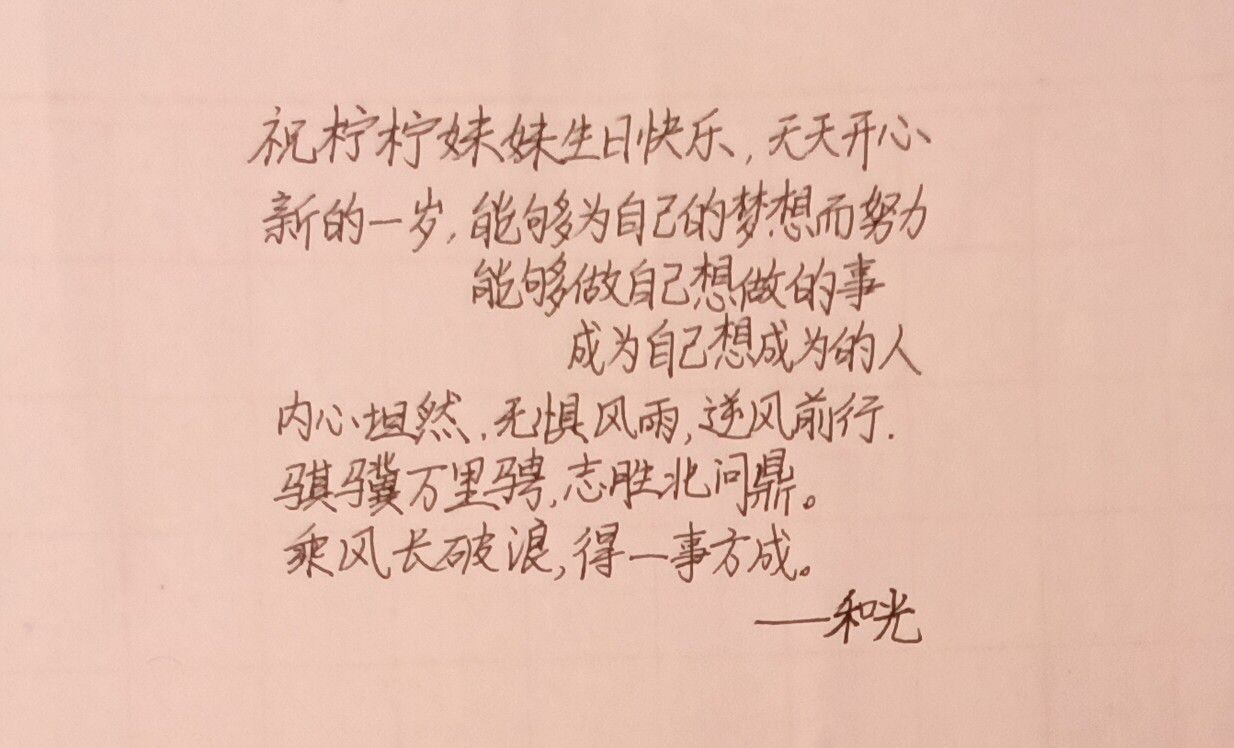 祝柠柠妹妹生日快乐，天天开心
新的一岁，能够为自己的梦想而努力
能够做自己想做的事
成为自己想成为的人
内心坦然，无惧风雨，逆风前行.
骐骥万里骋，志胜北问鼎。
乘风长破浪，得一事方成。
——和光